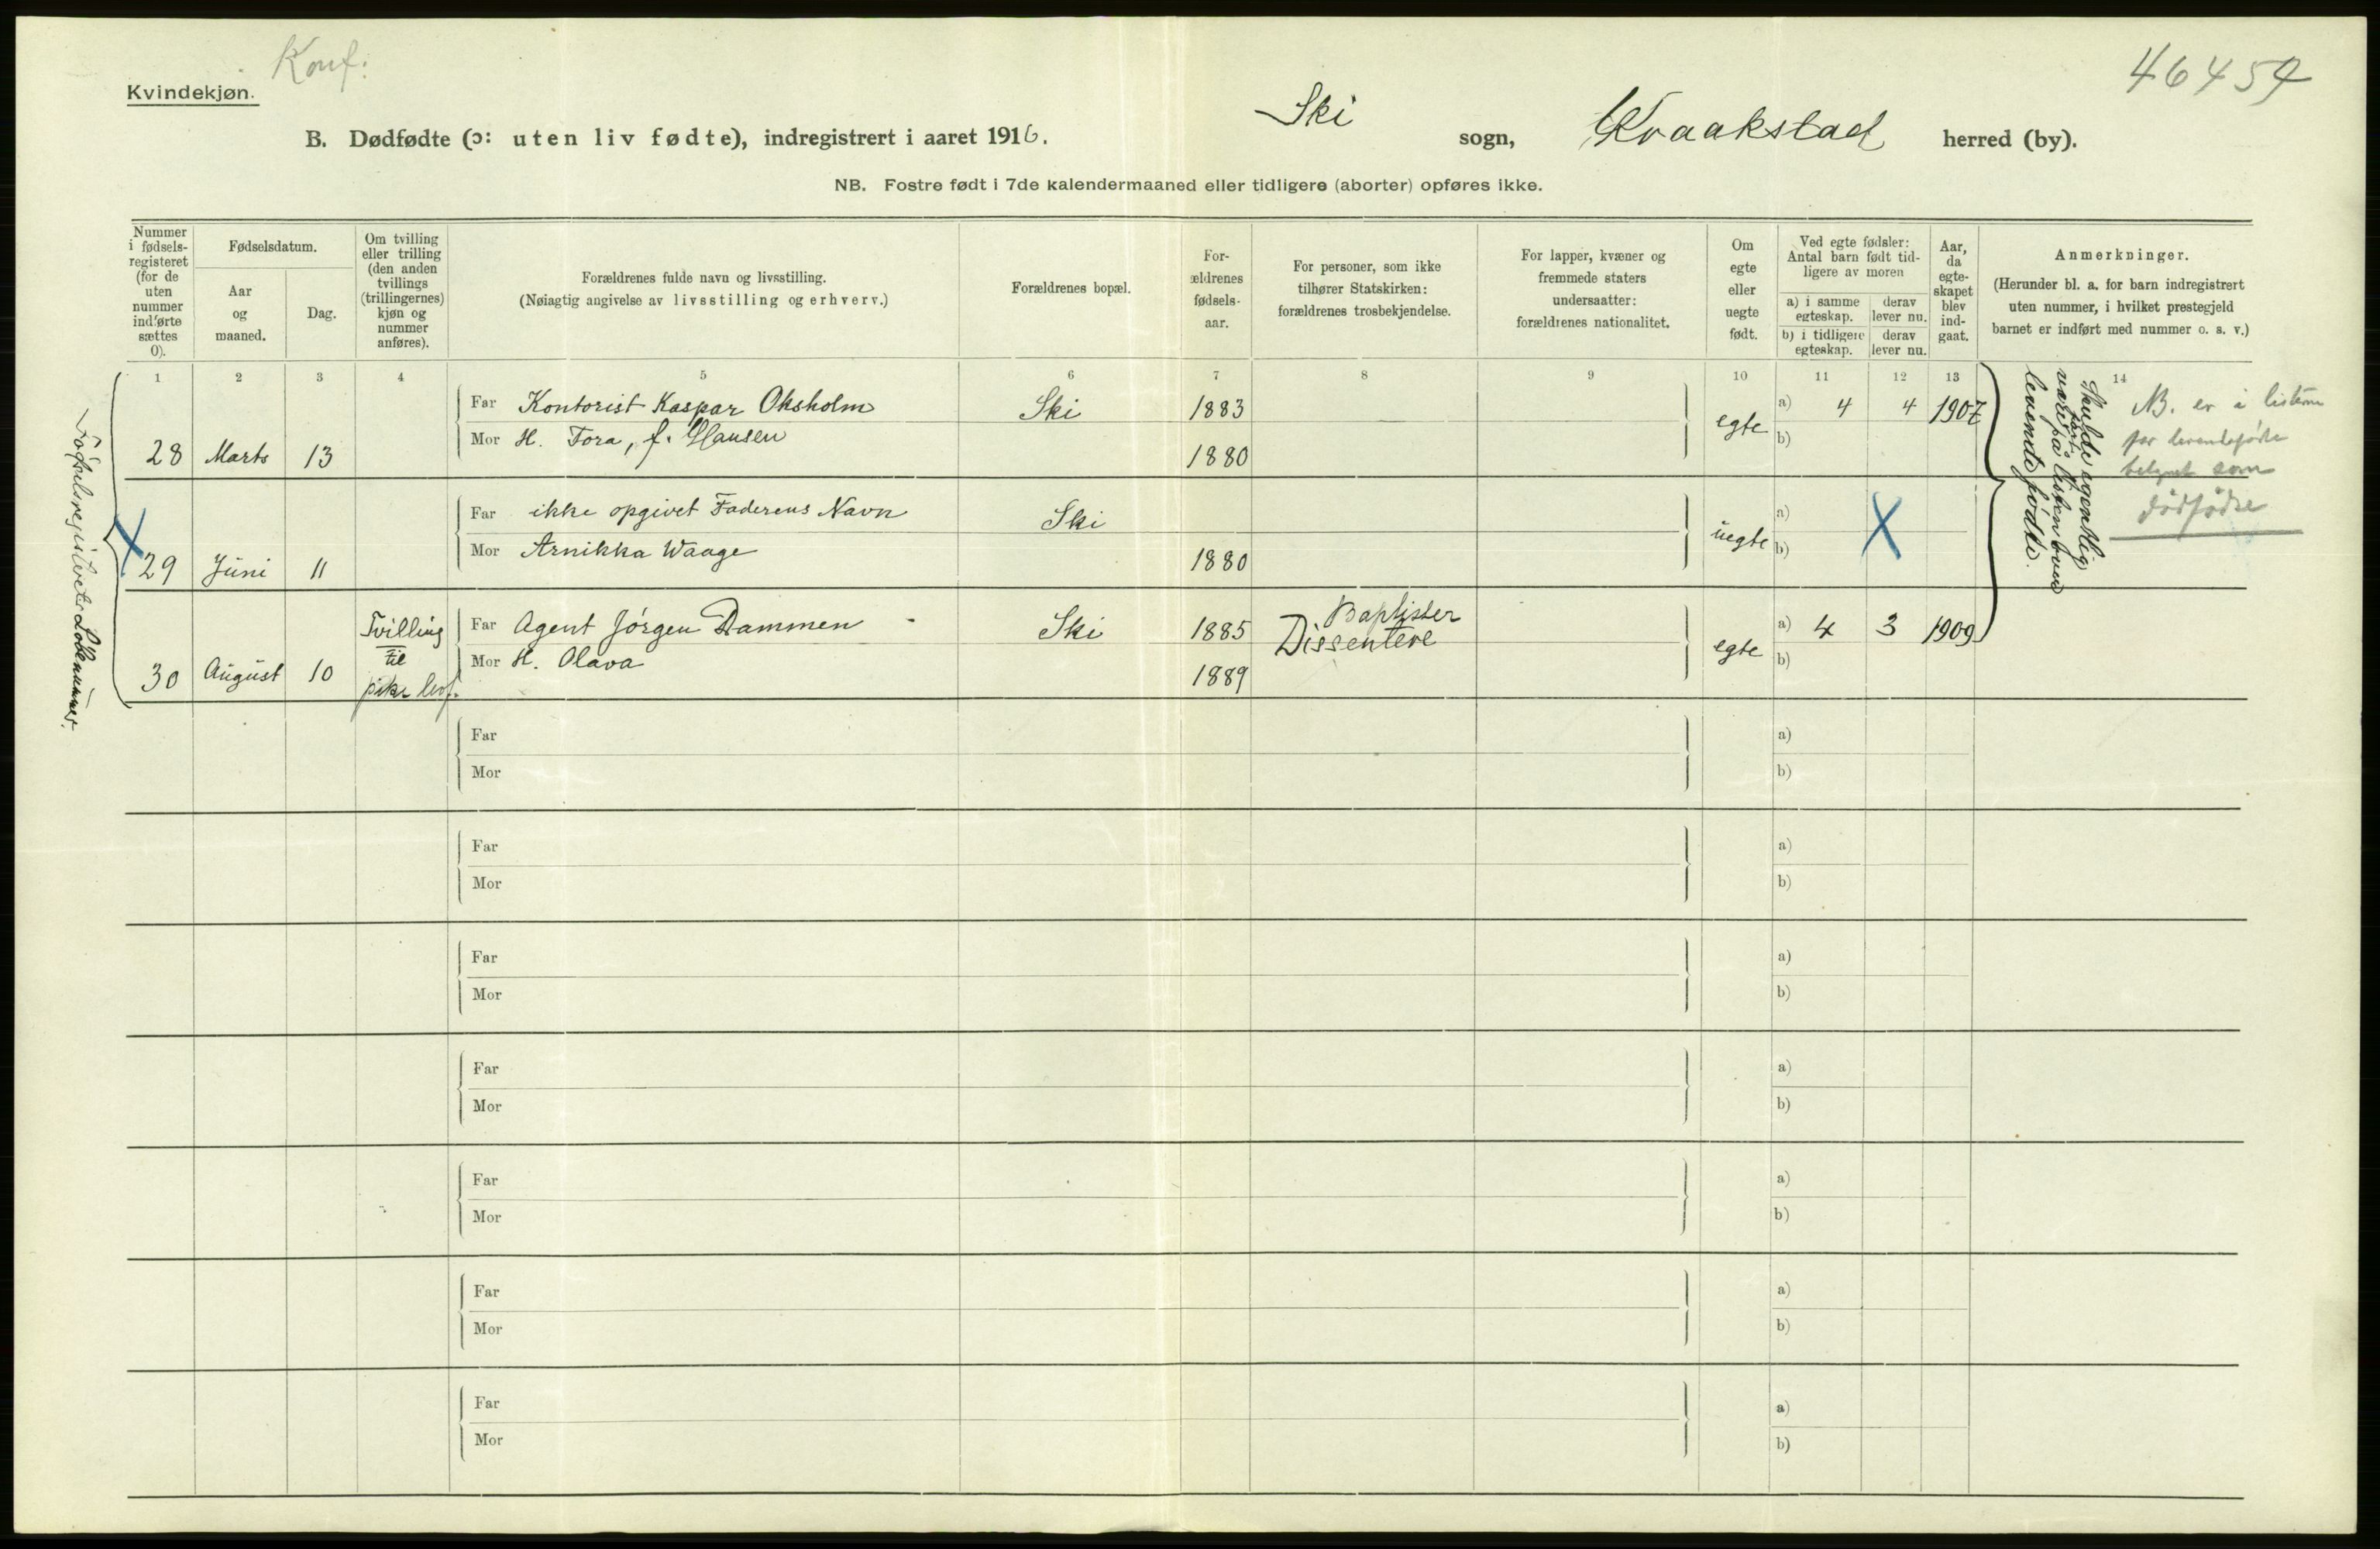 Konf:
46454
Kvindekjøn.
B. Dødfødte (ɔ: uten liv fødte), indregistrert i aaret 1916.
Ski sogn, Kraakstad herred (by).
NB. Fostre født i 7de kalendermaaned eller tidligere (aborter) opføres ikke.
Nummer i fødsels-registeret (for de uten nummer indførte sættes 0).
Fødselsdatum.
Aar og maaned.
Dag.
Om tvilling eller trilling (den anden tvillings (trillingernes) kjøn og nummer anføres).
Forældrenes fulde navn og livsstilling.
(Nøiagtig angivelse av livsstilling og erhverv.)
Forældrenes bopæl.
For-ældrenes fødsels-aar.
For personer, som ikke tilhører Statskirken: forældrenes trosbekjendelse.
For lapper, kvæner og fremmede staters undersaatter: forældrenes nationalitet.
Om egte eller uegte født.
Ved egte fødsler: Antal barn født tid-ligere av moren
a) i samme egteskap. derav lever nu.
b) i tidligere egteskap. derav lever nu.
Aar, da egte-skapet blev ind-gaat.
Anmerkninger.
(Herunder bl. a. for barn indregistrert uten nummer, i hvilket prestegjeld barnet er indført med nummer o. s. v.)
1 2 3 4 5 6 7 8 9 10 11 12 13 14
Fødselsregisterets Løbenummer.
28 Marts 13
Far Kontorist Kaspar Oksholm Ski 1883
Mor H. Tora, f. Hansen 1880
egte a) 4 4 1907
b)
29 Juni 11
Far ikke opgivet Faderens Navn Ski
Mor Arnikka Waage 1880
uegte a)
b)
X X
30 August 10
Tvilling til pike levf.
Far Agent Jørgen Dammen Ski 1885
Mor H. Olava 1889
Baptister
Dissentere
egte a) 4 3 1909
b)
Skulde egentlig
være ført på listen over
levende fødte.
NB. er i listerne
for levendefødte
betegnet som
dødfødte
Far a)
Mor b)
Far a)
Mor b)
Far a)
Mor b)
Far a)
Mor b)
Far a)
Mor b)
Far a)
Mor b)
Far a)
Mor b)